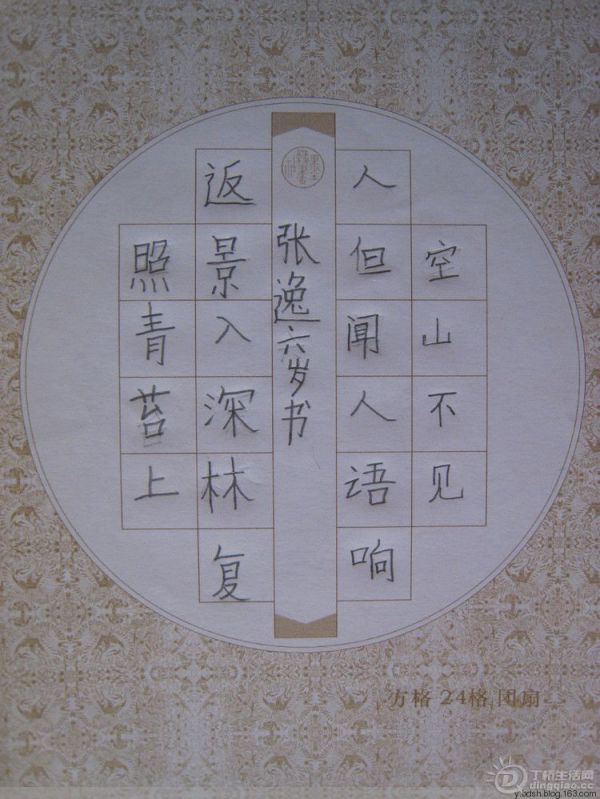 空山不见
人但闻人语响
张逸六岁书
返景入深林复
照青苔上
方格 24格 团扇
丁桥生活网
dingqiao.cc
y.adsh.blog.163.com